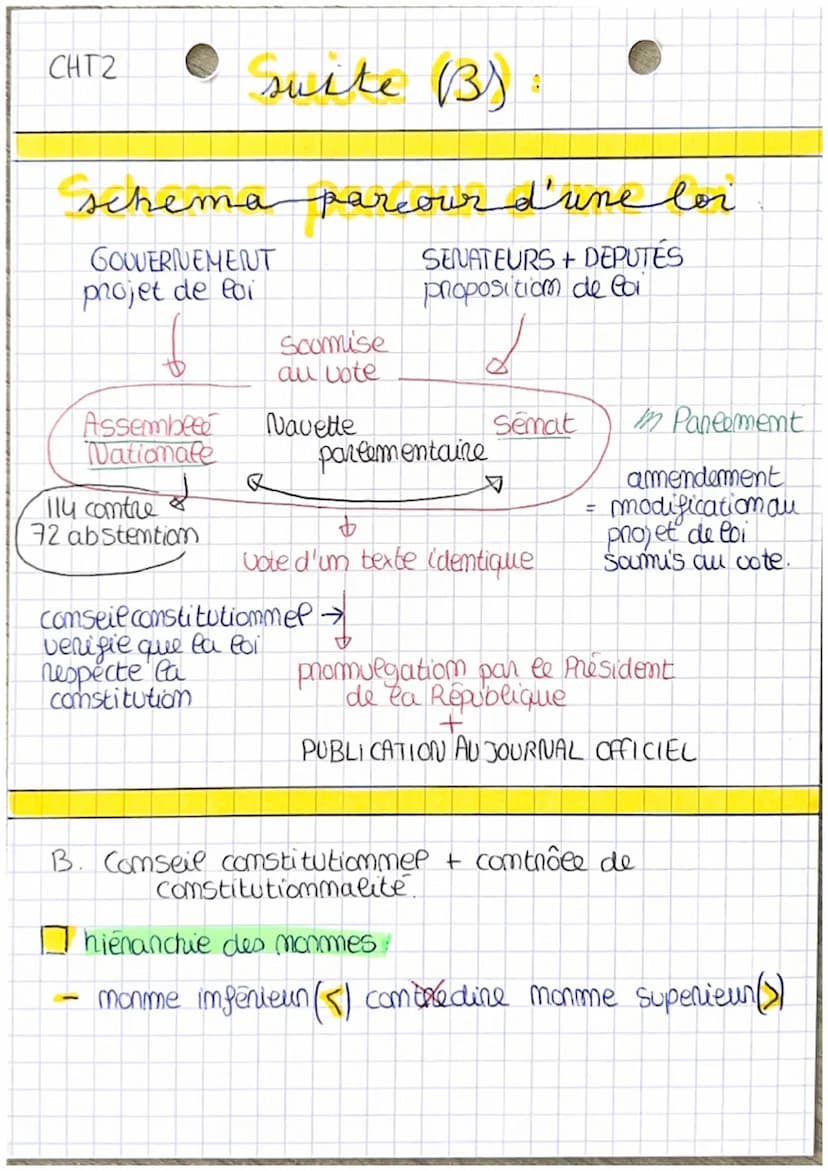 CHT2
Suite (B) :
Schema parcour d'une loi
GOUVERNEMENT
projet de loi
SENATEURS + DEPUTÉS
proposition de loi
Soumise
au vote
Assemblée
Nationale
Navette
parlementaire
Sénat
Parlement
114 contre
72 abstention
amendement
= modification au
projet de loi
soumis au vote.
vote d'un texte identique
conseil constitutionnel →
verifie que la loi
respecte la
constitution
promulgation par le Président
de la République
+
PUBLICATION AU JOURNAL OFFICIEL
B. Conseil constitutionnel + contrôle de
constitutionnalité.
hiérarchie des normes :
- norme inférieur (<) contredire norme superieur (>)